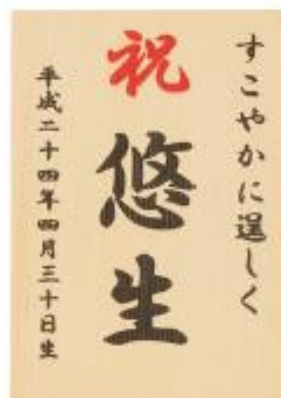 すこやかに逞しく
祝 悠生
平成二十四年四月三十日生